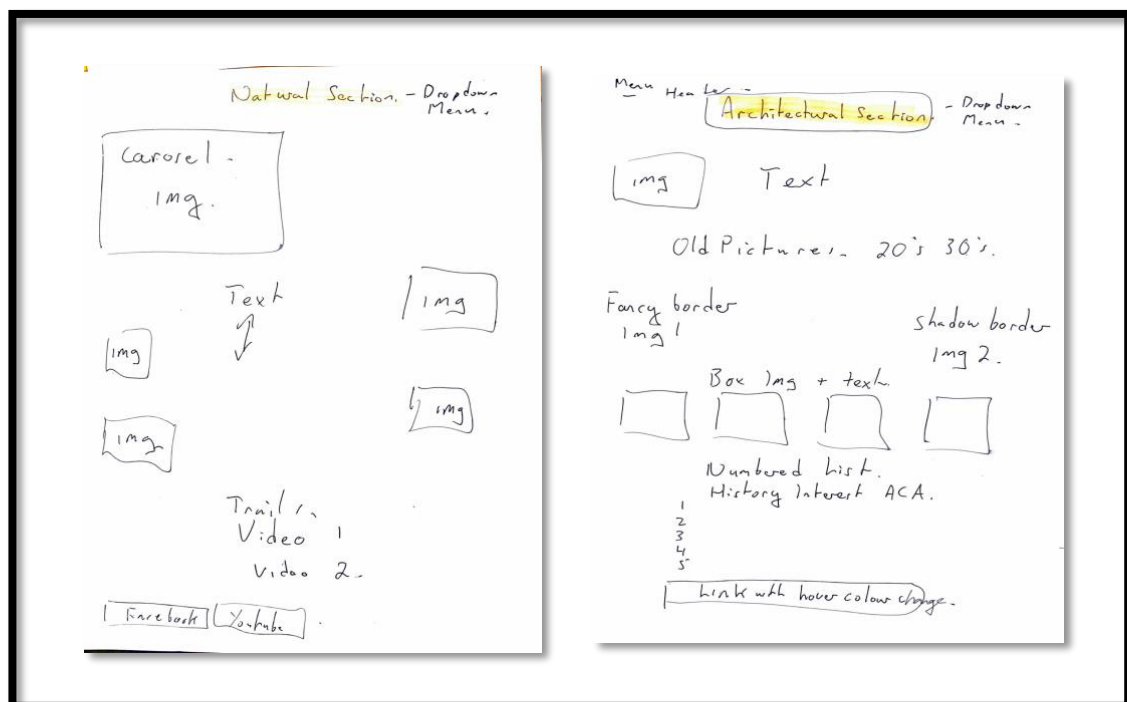 Natural Section. - Dropdown
Menu.
Carosel -
img.
Text
img
img
img
img
Trails.
Video 1
Video 2.
Facebook Youtube
Menu Header -
Architectural Section. - Dropdown
Menu -
img Text
Old Pictures. 20's 30's.
Fancy border
Img 1
Shadow border
Img 2.
Box Img + text.
Numbered List.
History Interest ACA.
1
2
3
4
5
Link with hover colour change.